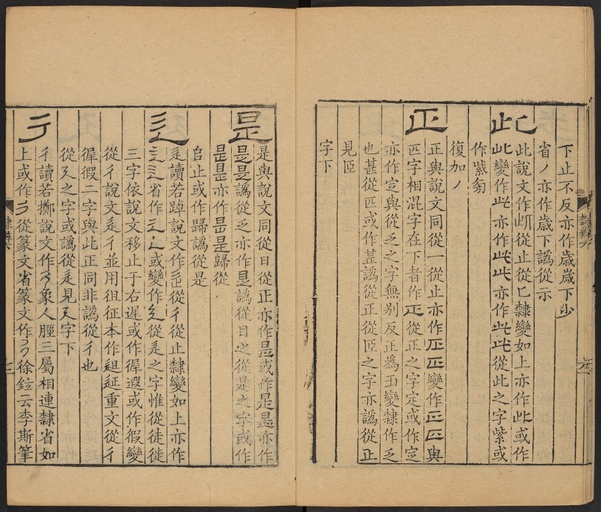 下止不反亦作歳歲下少
省ノ亦作歲下譌從示
此
此說文作從止從匕隸變如上亦作此或作
此變作此亦作此此亦作此此從此之字紫或
作紫
復加ノ
正
正與說文同從一從止亦作正正變作正正與
匹字相混字在下者作正從正之字定或作
亦作定與從乏之字無別反正為乏變隸作乏
也甚從匹或作甚譌從正從匝之字亦譌從正
見匝
字下
是
是與說文同從日從正亦作是或作是是亦作
是是譌從乏亦作是譌從日之從是之字或作
是是亦作是是歸從
止或作歸譌從是
辵
辵讀若踔說文作辵從彳從止隸變如上亦作
辶辶省作辶辶或變作辶從辵之字惟從徒徙
三字依說文移止于右遲或作徲遐或作徦變
從彳說文辵彳並用徂征本作䢐延重文從彳
徲徦二字與此正同非譌從彳也
從廴之字或譌從辵見廴字下
彳
彳讀若擲說文作彳象人脛三屬相連隸省如
上或作彳從篆文省篆文作彳徐鍇云李斯筆